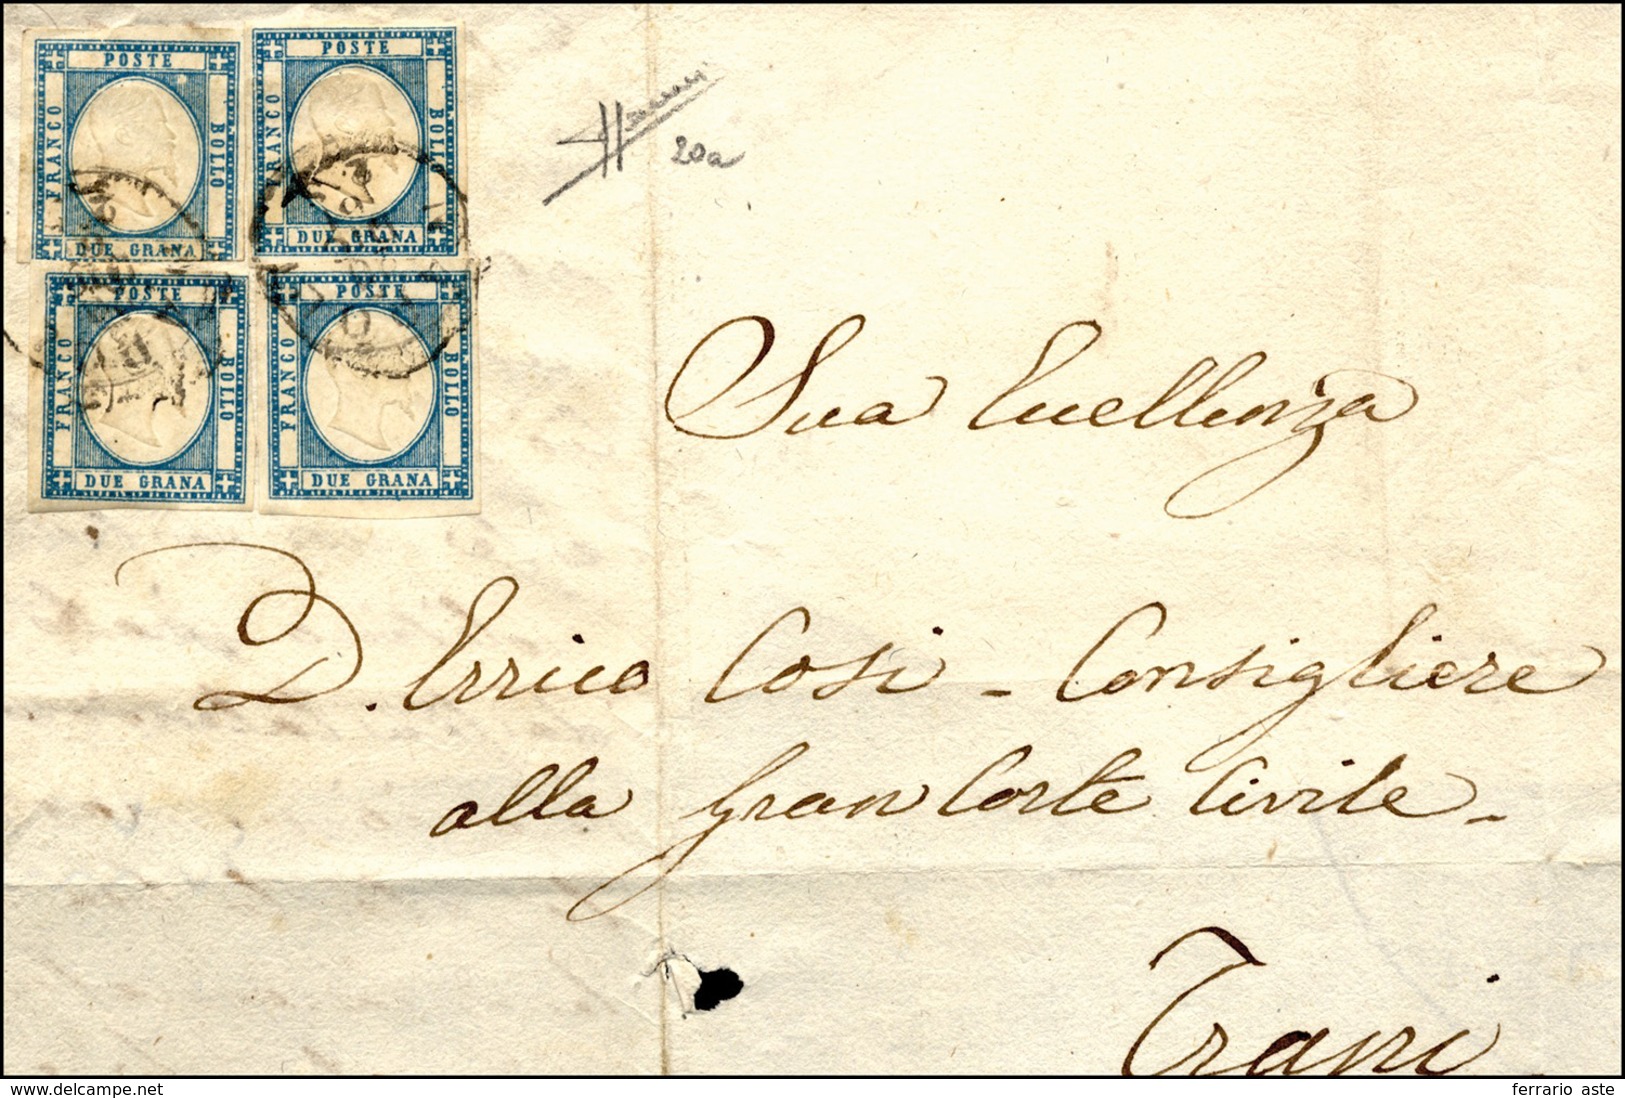 POSTE
FRANCO
BOLLO
DUE GRANA
POSTE
FRANCO
BOLLO
DUE GRANA
POSTE
FRANCO
BOLLO
DUE GRANA
POSTE
FRANCO
BOLLO
DUE GRANA
20a
Sua Eccellenza
D. Errico Cosi - Consigliere
alla Gran Corte Civile -
Trani
www.delcampe.net
ferrario aste